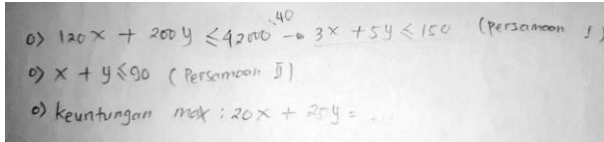 :40
o) 120x + 200y ≤ 42000 → 3x + 5y ≤ 150 (Persamaan I)
o) x + y ≤ 90 (Persamaan II)
o) keuntungan max : 20x + 25y = ...